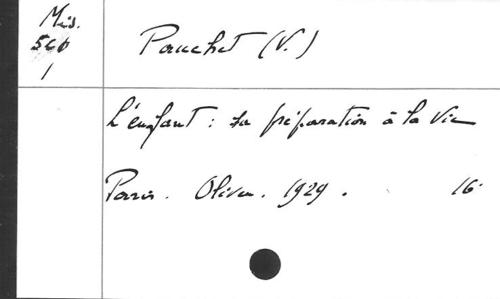 Méd.
560
1
Pauchet (V.)
L'enfant : sa préparation à la Vie
Paris. Oliven. 1929. 16°